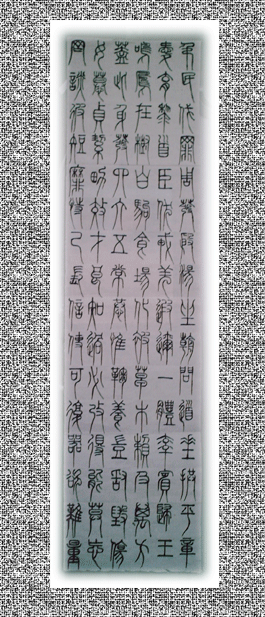 弔民伐罪周發殷湯坐朝問道垂拱平章
愛育黎首臣伏戎羌遐邇一體率賓歸王
鳴鳳在樹白駒食場化被草木賴及萬方
蓋此身髮四大五常恭惟鞠養豈敢毀傷
女慕貞絜男效才良知過必改得能莫忘
罔談彼短靡恃己長信使可復器欲難量